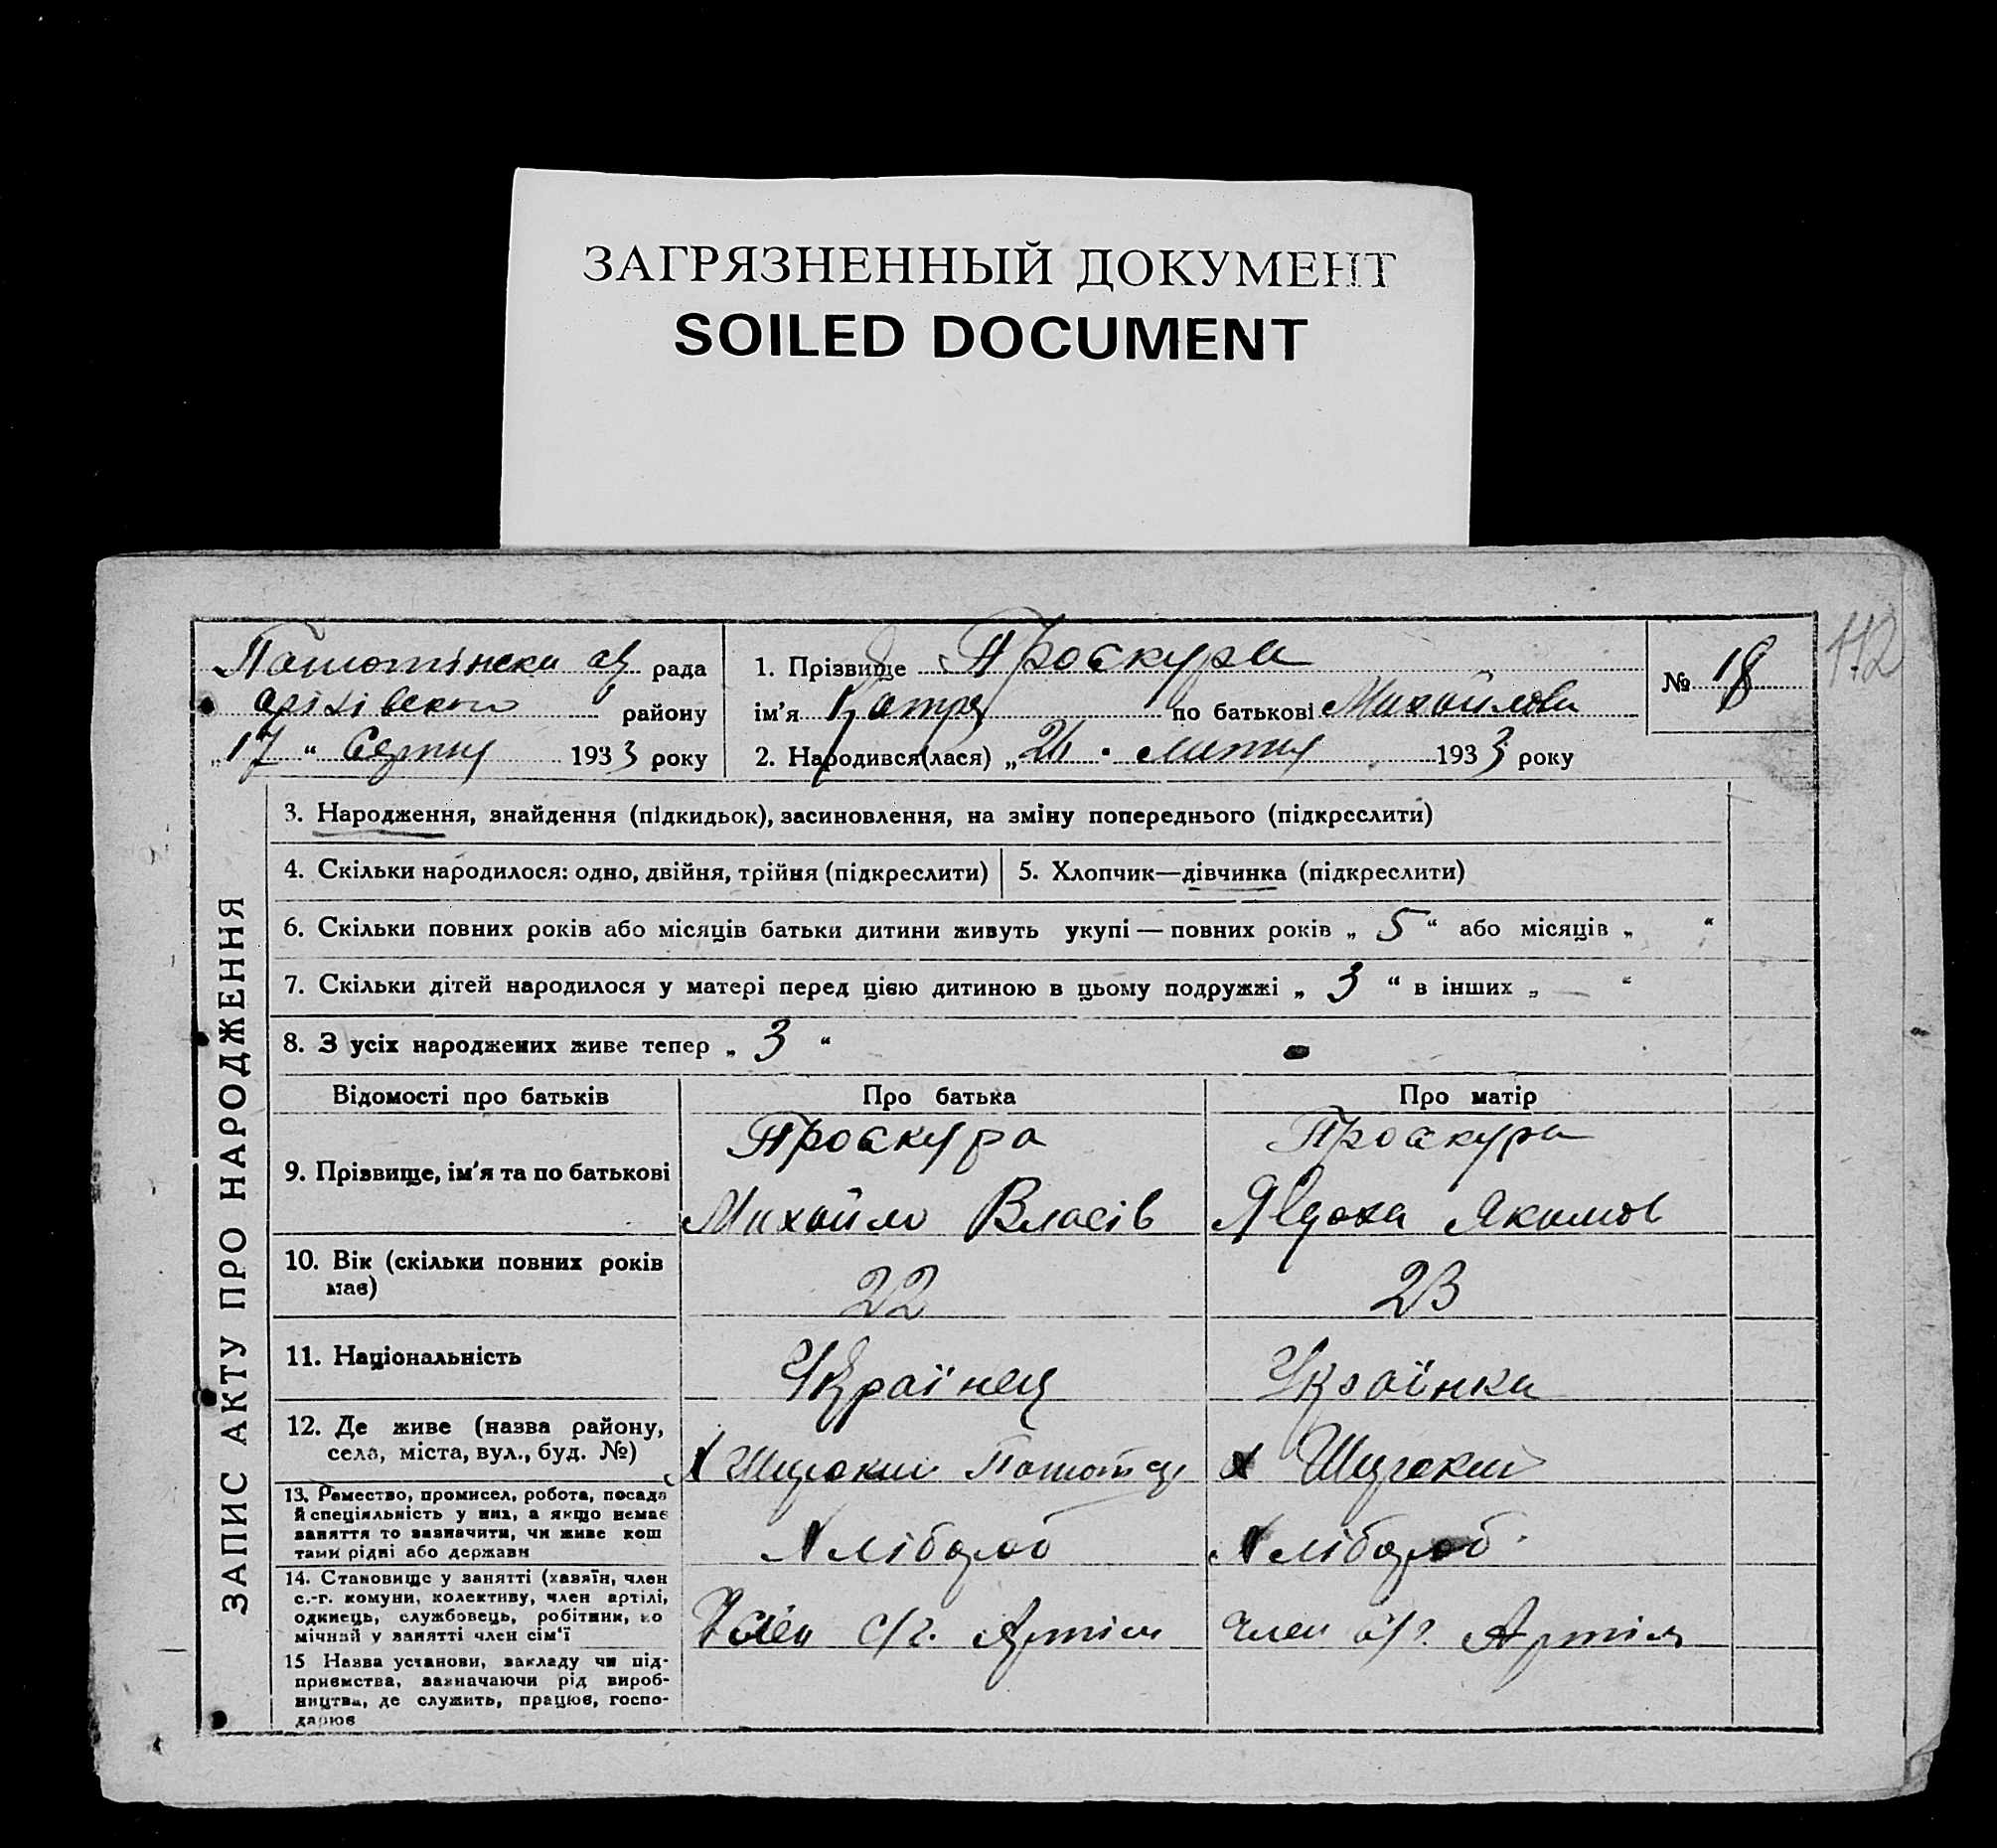 ЗАГРЯЗНЕННЫЙ ДОКУМЕНТ
SOILED DOCUMENT
112
рада
району
„17“ Серпня 1933 року
1. Прізвище Проскура
ім'я Катря по батькові Михайлова
2. Народився(лася) „ лютня 1933 року
№ 18
ЗАПИС АКТУ ПРО НАРОДЖЕННЯ
3. Народження, знайдення (підкидьок), засиновлення, на зміну попереднього (підкреслити)
4. Скільки народилося: одно, двійня, трійня (підкреслити)
5. Хлопчик—дівчинка (підкреслити)
6. Скільки повних років або місяців батьки дитини живуть укупі — повних років „ 5 “ або місяців „ “
7. Скільки дітей народилося у матері перед цією дитиною в цьому подружжі „ 3 “ в інших „ — “
8. З усіх народжених живе тепер „ 3 “
Відомості про батьків
Про батька
Про матір
9. Прізвище, ім'я та по батькові
Проскура
Михайло Власів
Проскура
Явдоха Якимов
10. Вік (скільки повних років
має)
22
23
11. Національність
Українец
Українка
12. Де живе (назва району,
села, міста, вул., буд. №)
х
х
13. Ремество, промисел, робота, посада
й спеціяльність у них, а якщо немає
заняття то зазначити, чи живе кош
тами рідні або держави
Хлібороб
Хлібороб
14. Становище у занятті (хазяїн, член
с.-г. комуни, колективу, член артілі,
одинець, службовець, робітник, по
мічний у занятті член сім'ї
Член с/г. Артіли
член с/г. Артіля
15 Назва установи, закладу чи під-
приємства, зазначаючи рід вироб-
ництва, де служить, працює, госпо-
дарює